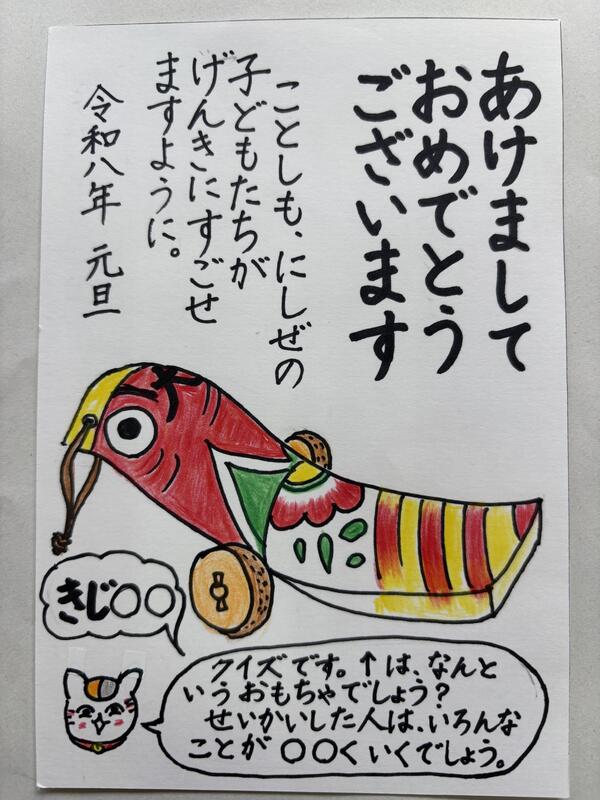 あけまして
おめでとう
ございます
ことしも、にしぜの
子どもたちが
げんきにすごせ
ますように。
令和八年 元旦
きじ○○
クイズです。↑は、なんと
いうおもちゃでしょう？
せいかいした人は、いろんな
ことが ○○くいくでしょう。